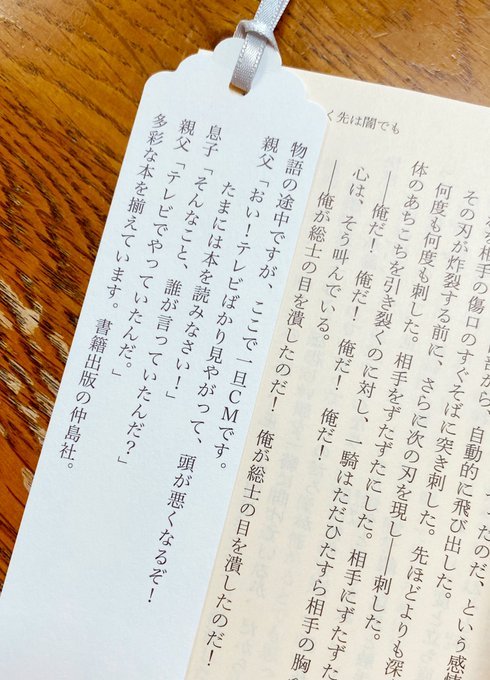 く先は闇でも
ったのだ、という感情
部から、自動的に飛び出した。
相手の傷口のすぐそばに突き刺した。先ほどよりも深
その刃が炸裂する前に、さらに次の刃を現し――刺した。
何度も何度も刺した。相手をずたずたにした。相手にずたずた
体のあちこちを引き裂くのに対し、一騎はただひたすら相手の胸
――俺だ！　俺だ！　俺だ！　俺だ！
心は、そう叫んでいる。
――俺が総士の目を潰したのだ！　俺が総士の目を潰したのだ！
物語の途中ですが、ここで一旦CMです。
親父「おい！テレビばかり見やがって、頭が悪くなるぞ！
たまには本を読みなさい！」
息子「そんなこと、誰が言っていたんだ？」
親父「テレビでやっていたんだ。」
多彩な本を揃えています。書籍出版の仲島社。